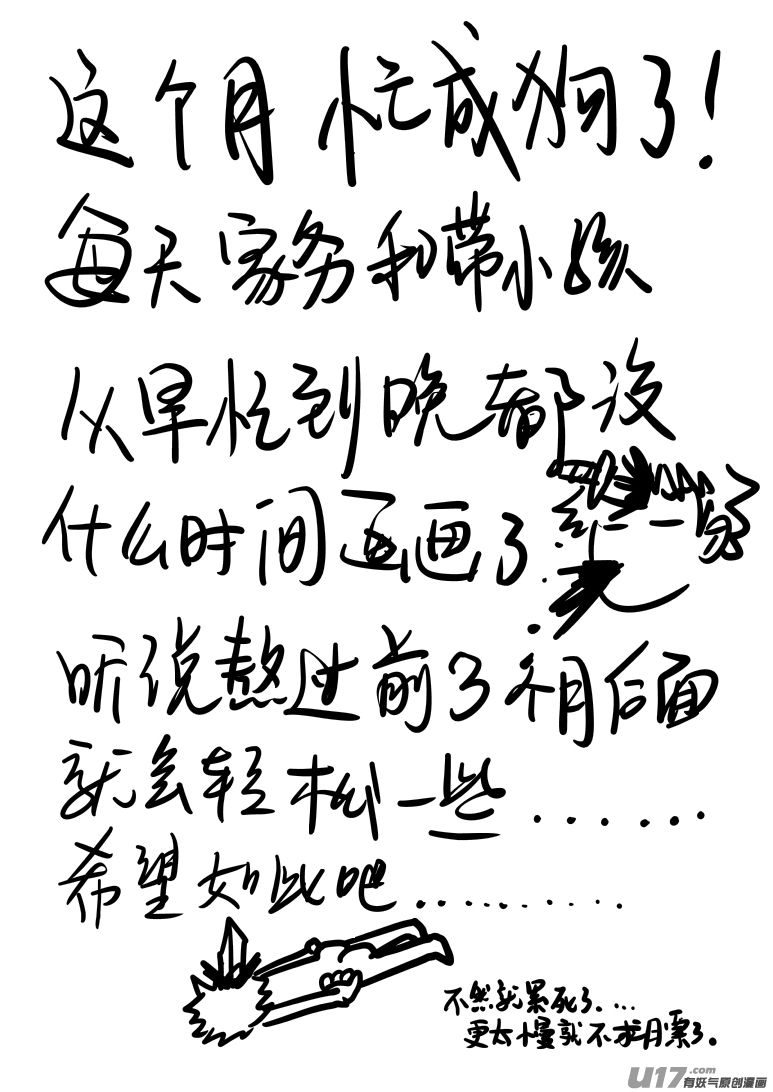 这个月忙成狗了!
每天家务和带小孩
从早忙到晚都没
什么时间画画了
听说熬过前3个月后面
就会轻松一些......
希望如此吧..........
不然就累死了....
更太慢就不求月票了。
U17.com
有妖气原创漫画